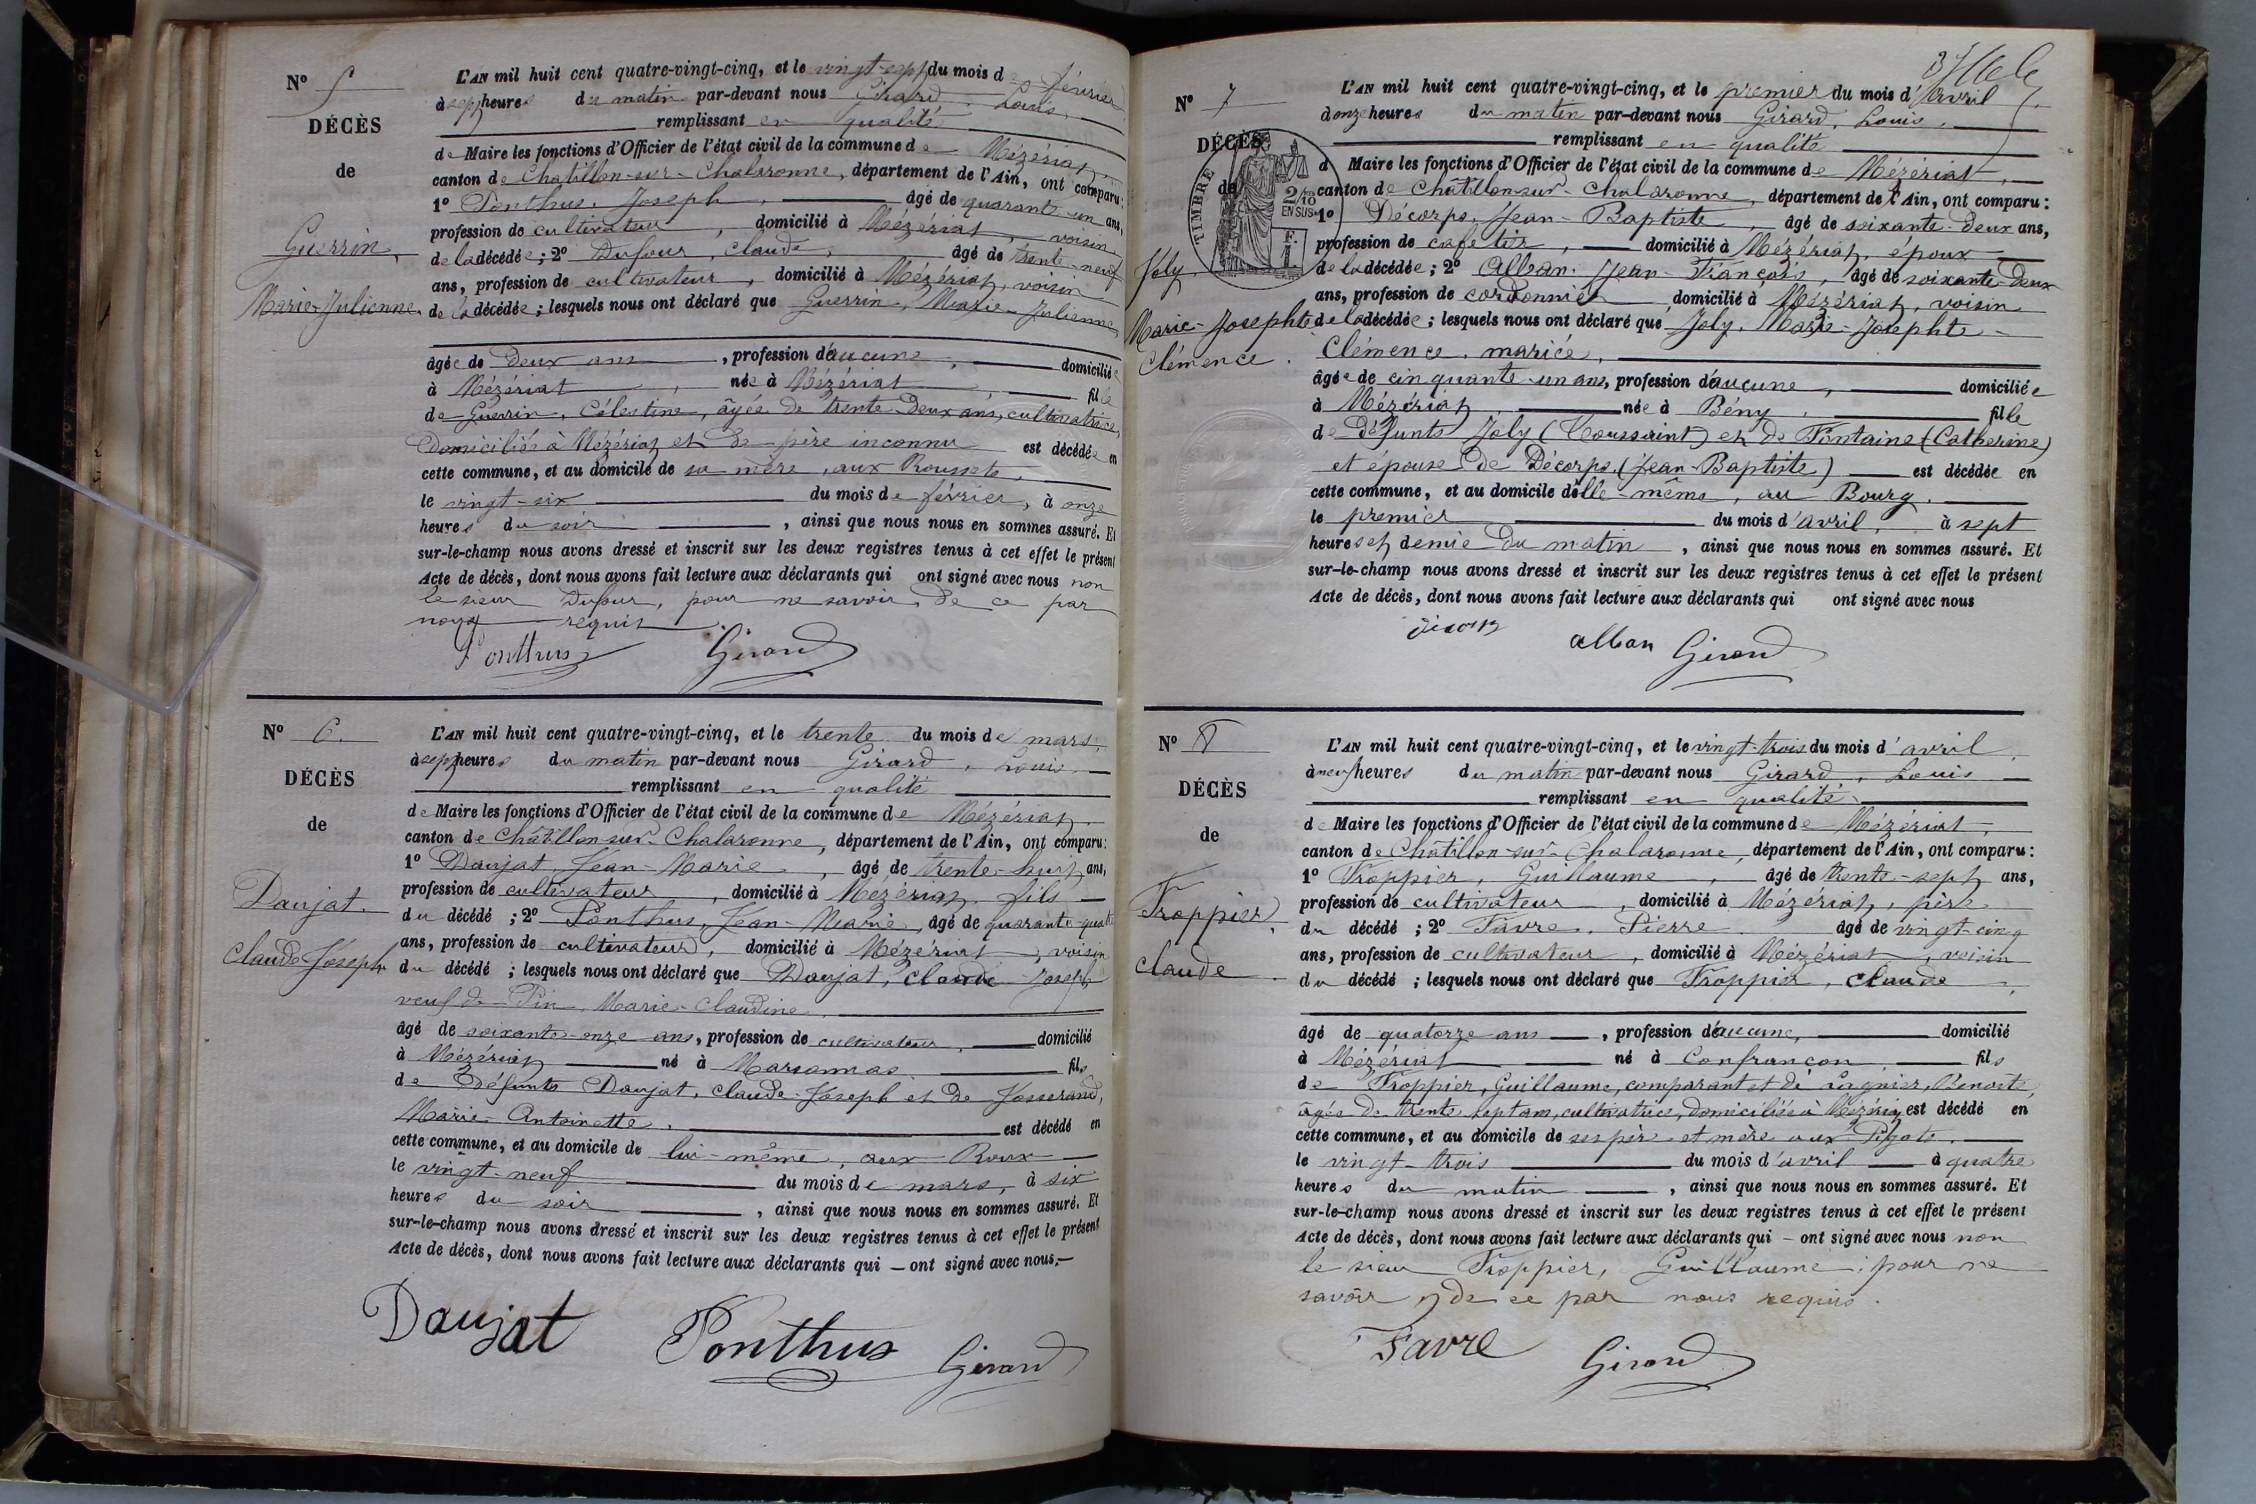 N° 5
DÉCÈS
de
Guerrin,
Marie-Julienne.
L'AN mil huit cent quatre-vingt-cinq, et le vingt-sept du mois de février
à sept heures du matin par-devant nous Girard, Louis,
remplissant en qualité
de Maire les fonctions d'Officier de l'état civil de la commune de Mézériat,
canton de Châtillon-sur-Chalaronne, département de l'Ain, ont comparu :
1° Ponthus, Joseph, âgé de quarante-un ans,
profession de cultivateur, domicilié à Mézériat, voisin
de la décédée ; 2° Dufour, Claude, âgé de trente-neuf
ans, profession de cultivateur, domicilié à Mézériat, voisin
de la décédée ; lesquels nous ont déclaré que Guerrin, Marie-Julienne
âgée de deux ans, profession d'aucune, domiciliée
à Mézériat, née à Mézériat fille
de Guerrin, Célestine, âgée de trente-deux ans, cultivatrice,
domiciliée à Mézériat et de père inconnu est décédée en
cette commune, et au domicile de sa mère, aux Roussets,
le vingt-six du mois de février, à onze
heures du soir, ainsi que nous nous en sommes assuré. Et
sur-le-champ nous avons dressé et inscrit sur les deux registres tenus à cet effet le présent
Acte de décès, dont nous avons fait lecture aux déclarants qui ont signé avec nous non
le sieur Dufour, pour ne savoir, de ce par
nous requis.
Ponthus Girard
N° 6.
DÉCÈS
de
Daujat.
Claude Joseph
L'AN mil huit cent quatre-vingt-cinq, et le trente du mois de mars,
à sept heures du matin par-devant nous Girard, Louis,
remplissant en qualité
de Maire les fonctions d'Officier de l'état civil de la commune de Mézériat,
canton de Châtillon-sur-Chalaronne, département de l'Ain, ont comparu :
1° Daujat Jean-Marie, âgé de trente-huit ans,
profession de cultivateur, domicilié à Mézériat, fils
du décédé ; 2° Ponthus, Jean-Marie, âgé de quarante-quatre
ans, profession de cultivateur, domicilié à Mézériat, voisin
du décédé ; lesquels nous ont déclaré que Daujat, Claude-Joseph
veuf de Pin, Marie-Claudine
âgé de soixante-onze ans, profession de cultivateur, domicilié
à Mézériat né à Marsonnas fils
de défunts Daujat, Claude-Joseph et de Josserand,
Marie-Antoinette. est décédé en
cette commune, et au domicile de lui-même, aux Roux
le vingt-neuf du mois de mars, à six
heures du soir, ainsi que nous nous en sommes assuré. Et
sur-le-champ nous avons dressé et inscrit sur les deux registres tenus à cet effet le présent
Acte de décès, dont nous avons fait lecture aux déclarants qui ont signé avec nous.
Daujat Ponthus Girard
N° 7
DÉCÈS
de
Joly,
Marie-Josephte
Clémence.
TIMBRE
2/10
EN SUS
F.
1
L'AN mil huit cent quatre-vingt-cinq, et le premier du mois d'avril
à onze heures du matin par-devant nous Girard, Louis,
remplissant en qualité
d Maire les fonctions d'Officier de l'état civil de la commune de Mézériat,
canton de Châtillon-sur-Chalaronne, département de l'Ain, ont comparu :
1° Décorps, Jean-Baptiste, âgé de soixante-deux ans,
profession de cafetier, domicilié à Mézériat, époux
de la décédée ; 2° Alban, Jean-François, âgé de soixante-deux
ans, profession de cordonnier domicilié à Mézériat, voisin
de la décédée ; lesquels nous ont déclaré que Joly, Marie-Josephte
Clémence, mariée,
âgée de cinquante-un ans, profession d'aucune, domiciliée
à Mézériat, née à Bény, fille
de défunts Joly (Toussaint) et de Fontaine (Catherine)
et épouse de Décorps (Jean-Baptiste) est décédée en
cette commune, et au domicile d'elle-même, au Bourg.
le premier du mois d'avril, à sept
heures et demie du matin, ainsi que nous nous en sommes assuré. Et
sur-le-champ nous avons dressé et inscrit sur les deux registres tenus à cet effet le présent
Acte de décès, dont nous avons fait lecture aux déclarants qui ont signé avec nous
Décorps alban Girard
N° 8
DÉCÈS
de
Froppier,
Claude
L'AN mil huit cent quatre-vingt-cinq, et le vingt-trois du mois d'avril,
à neuf heures du matin par-devant nous Girard, Louis
remplissant en qualité
de Maire les fonctions d'Officier de l'état civil de la commune de Mézériat,
canton de Châtillon-sur-Chalaronne, département de l'Ain, ont comparu :
1° Froppier, Guillaume, âgé de trente-sept ans,
profession de cultivateur, domicilié à Mézériat, père
du décédé ; 2° Favre, Pierre âgé de vingt-cinq
ans, profession de cultivateur, domicilié à Mézériat, voisin
du décédé ; lesquels nous ont déclaré que Froppier, Claude,
âgé de quatorze ans, profession d'aucune, domicilié
à Mézériat né à Confrançon fils
de Froppier, Guillaume, comparant et de Benoîte,
âgés de trente-sept ans, cultivatrice, domiciliés à Mézériat est décédé en
cette commune, et au domicile de ses père et mère aux
le vingt-trois du mois d'avril à quatre
heures du matin, ainsi que nous nous en sommes assuré. Et
sur-le-champ nous avons dressé et inscrit sur les deux registres tenus à cet effet le présent
Acte de décès, dont nous avons fait lecture aux déclarants qui ont signé avec nous non
le sieur Froppier, Guillaume, pour ne
savoir, de ce par nous requis.
Favre Girard